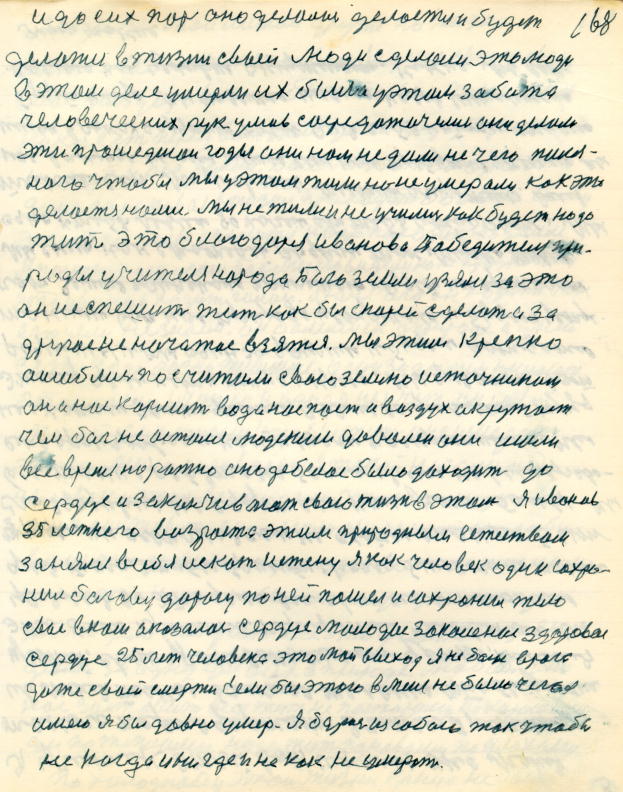 и до сих пор оно делалось делается и будет 168
делатся в жизни своей люди сделали это люди
в этом деле умерли их была у этом забота
человеческих рук умов сосредоточили они делали
эти прошедшии годы они нам не дали не чего такого
ного чтобы мы у этом жили но не умерали как это
делается нами. мы не жили и не училися как будет надо
жить это благодоря иванова Победителя при-
роды учителя народа Бога земли узялися за это
он не спешит жить как бы скорей сделать а за
другое не начатое взятся. мы этим крепко
ошиблися посчитали свою землю источником
она нас кормит вода нас поит а воздух окружает
чем бог не остался людскими доволен они шли
все время на ратно оно дебелое было доходит до
сердце и закончив тот свою жизнь в этом я иванов
35 летнего возраста этим природным естеством
занялся искать истену я как человек один сохра-
нил богову дорогу по ней пошел и сохранил тело
свое в нем оказалось сердце молодое закаленое здоровое
сердце 25 лет человека это мой выход я не боюсь врага
даже своей смерти если бы этого в меня не было чего
имею я бы давно умер. я борюсь из собою так чтобы
не когда и ни где и не как не умереть.